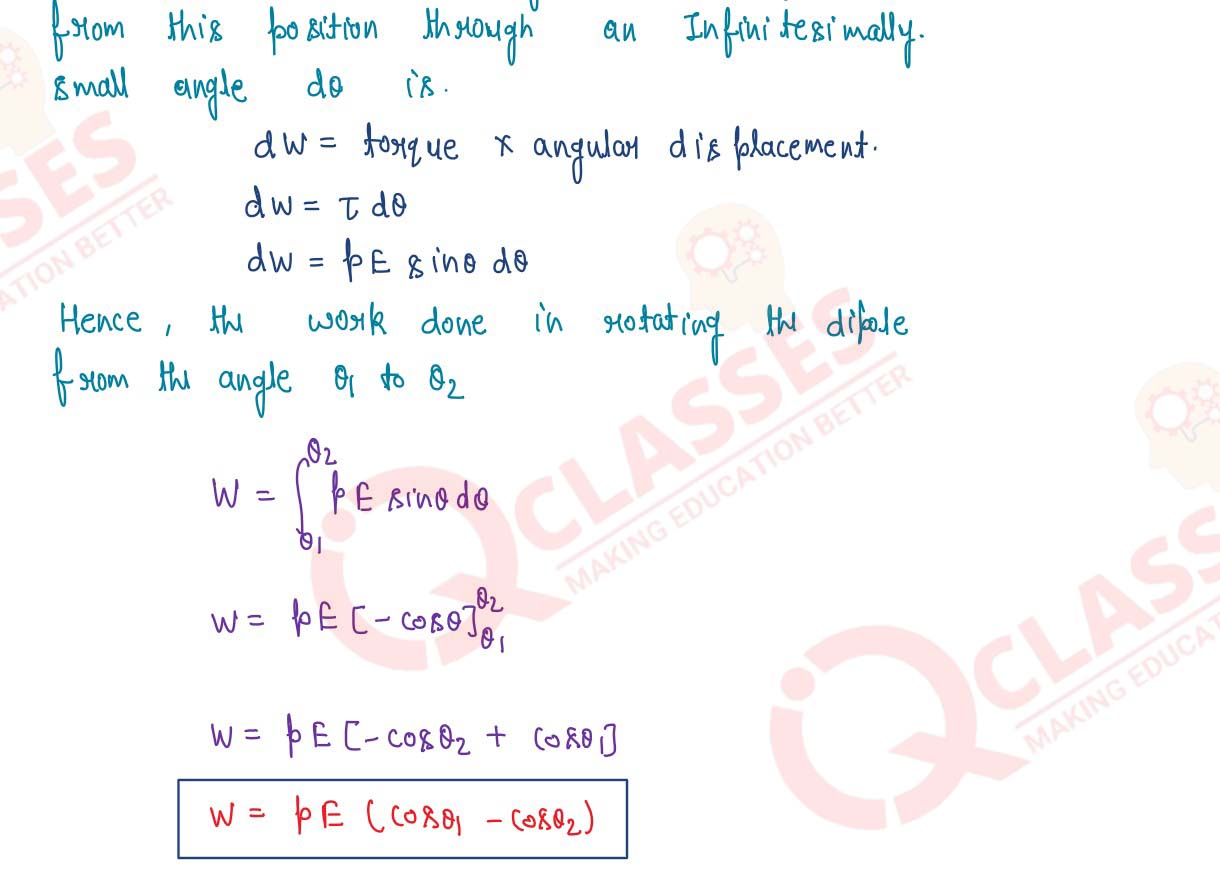 from this position through an Infinitesimally.
small angle dθ is.
dW = torque × angular displacement.
dW = τ dθ
dW = pE sinθ dθ
Hence, the work done in rotating the dipole
from the angle θ₁ to θ₂
W = ∫_θ₁^θ₂ pE sinθ dθ
W = pE [-cosθ]_θ₁^θ₂
W = pE [-cosθ₂ + cosθ₁]
W = pE (cosθ₁ - cosθ₂)
SES
ATION BETTER
iQ CLASSES
MAKING EDUCATION BETTER
iQ CLASS
MAKING EDUCAT